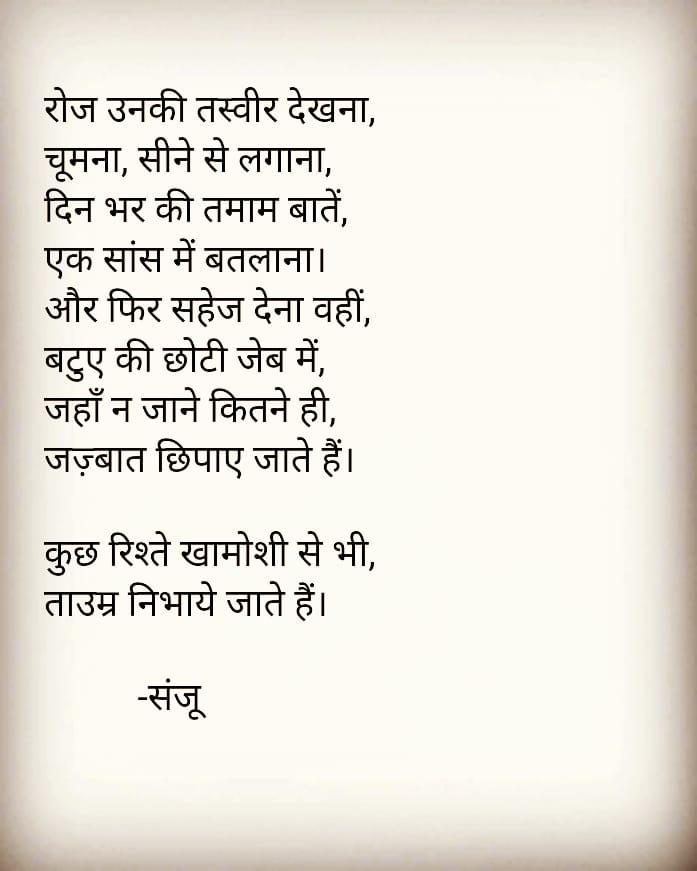 रोज उनकी तस्वीर देखना,
चूमना, सीने से लगाना,
दिन भर की तमाम बातें,
एक सांस में बतलाना।
और फिर सहेज देना वहीं,
बटुए की छोटी जेब में,
जहाँ न जाने कितने ही,
जज़्बात छिपाए जाते हैं।
कुछ रिश्ते खामोशी से भी,
ताउम्र निभाये जाते हैं।
-संजू